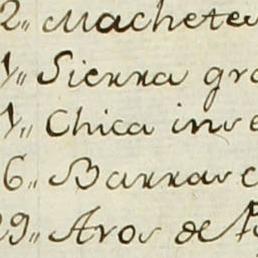 2,, Machete
1,, Sierra gra
1,, Chica inse
6,, Barras c
29,, Aros de